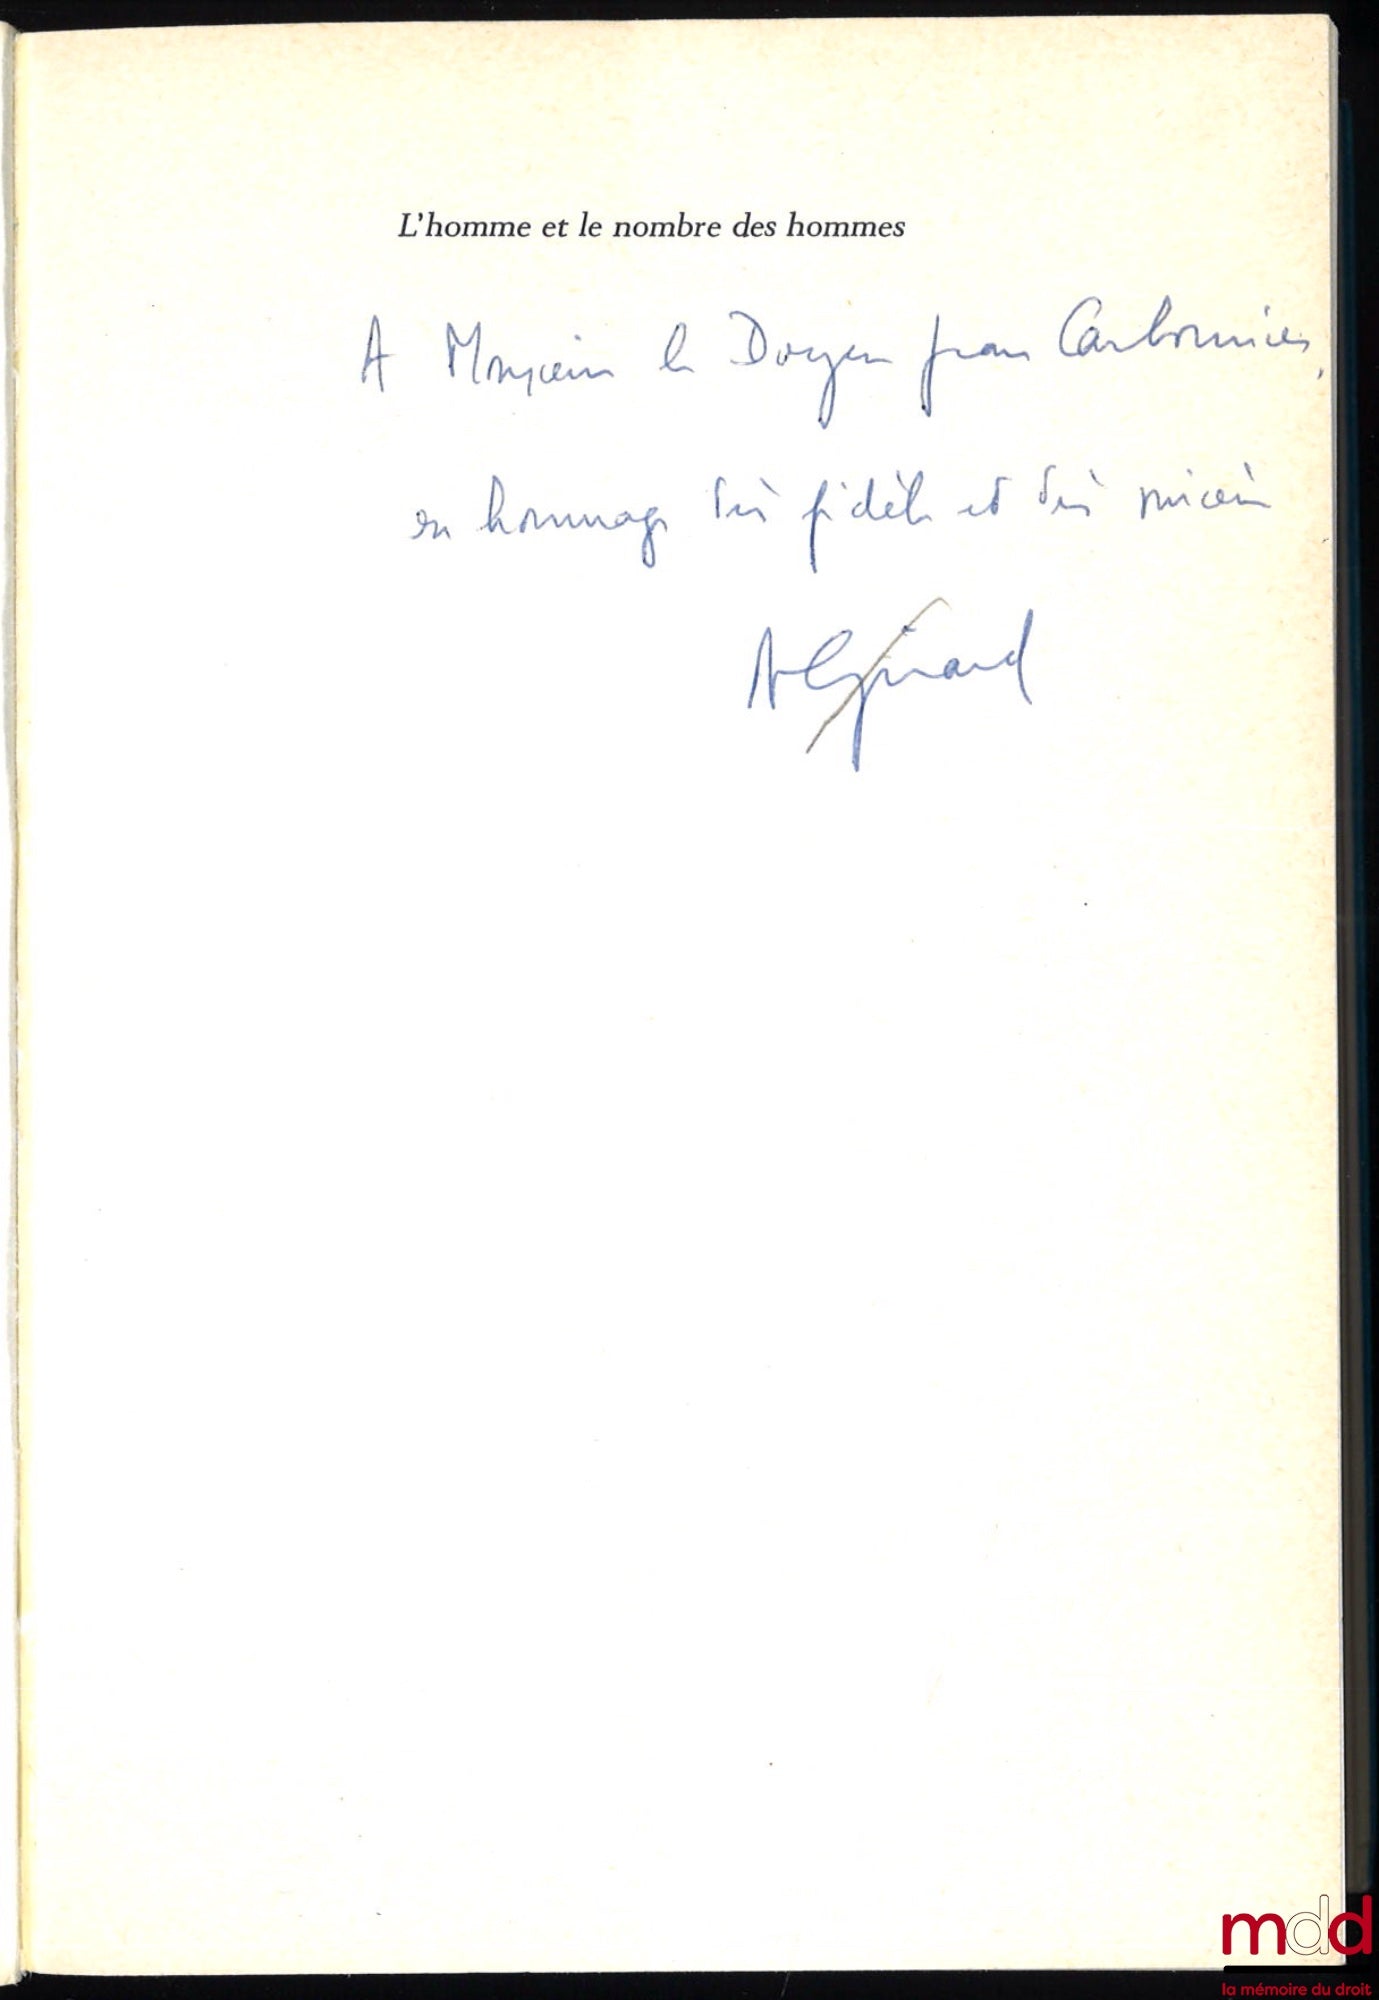 L'homme et le nombre des hommes
A Monsieur le Doyen Jean Carbonnier,
en hommage très fidèle et très sincère
A Girard
mdd
la mémoire du droit